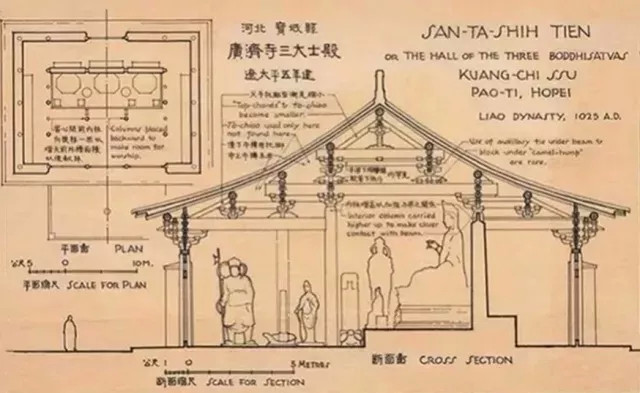 河北 寶坻縣
廣濟寺三大士殿
遼太平五年建
SAN-TA-SHIH TIEN
OR THE HALL OF THE THREE BODDHISATVAS
KUANG-CHI SSU
PAO-TI, HOPEI
LIAO DYNASTY, 1025 A.D.
"Top-chords" to to-chiao
become smaller.
To-chiao used only here
not found here
Use of auxiliary tie under beam to
block under "camel-hump"
are rare.
Columns placed
backward to
make room for
worship.
Interior column carried
higher up to make closer
contact with beam.
平面圖 PLAN
公尺 5 0 10M.
平面縮尺 SCALE FOR PLAN
公尺 1 0 5 METRES
断面縮尺 SCALE FOR SECTION
断面圖 CROSS SECTION